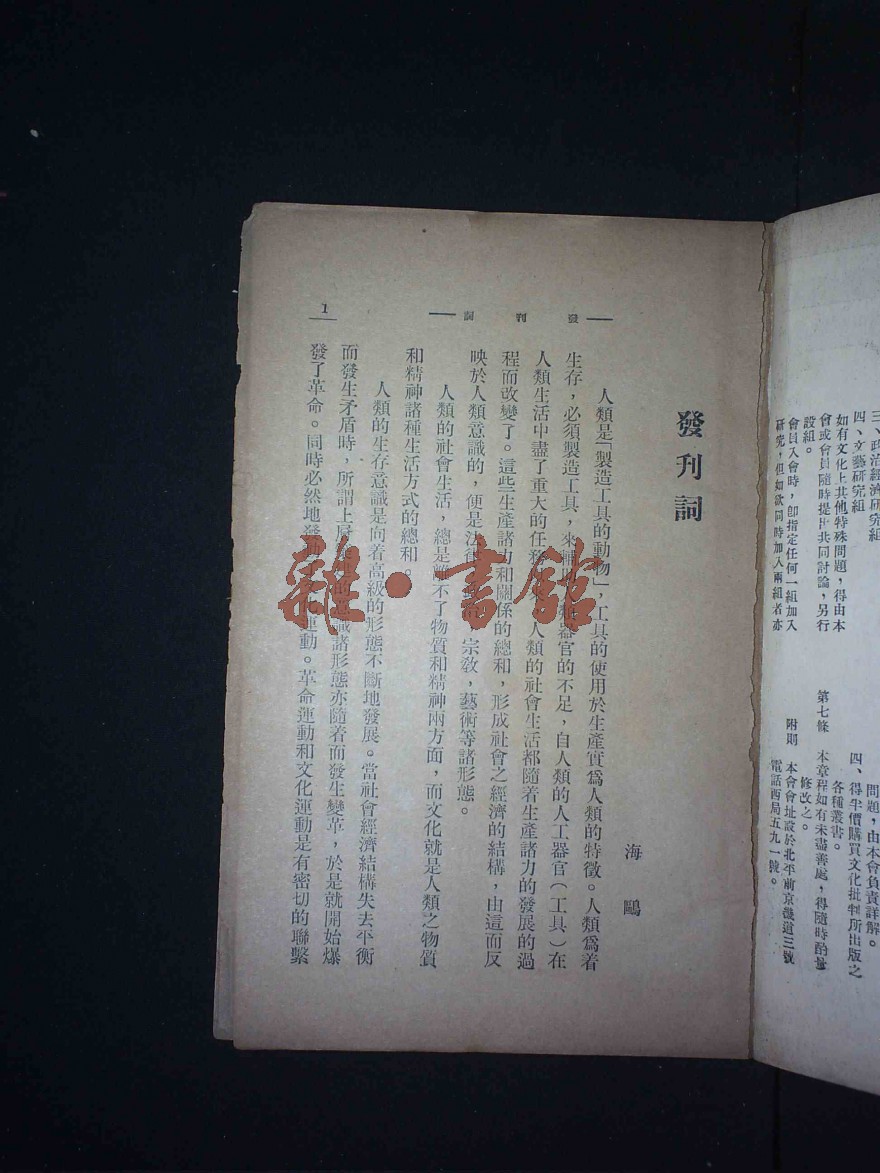 三、政治經濟研究組
四、文藝研究組
如有文化上其他特殊問題，得由本
會或會員隨時提出共同討論，另行
設組。
會員入會時，卽指定任何一組加入
研究，但如欲同時加入兩組者亦
問題，由本會負責詳解。
四、得半價購買文化批判所出版之
各種叢書。
第七條 本章程如有未盡善處，得隨時酌量
修改之。
附則 本會會址設於北平前京畿道三號
電話西局五九一號。
發刊詞
1
發刊詞
海鷗
人類是「製造工具的動物」，工具的使用於生產實爲人類的特徵。人類爲着
生存，必須製造工具，來補器官的不足，自人類的人工器官（工具）在
人類生活中盡了重大的任人類的社會生活都隨着生產諸力的發展的過
程而改變了。這些生產諸力和關係的總和，形成社會之經濟的結構，由這而反
映於人類意識的，便是法律，宗敎，藝術等諸形態。
人類的社會生活，總是離不了物質和精神兩方面，而文化就是人類之物質
和精神諸種生活方式的總和。
人類的生存意識是向着高級的形態不斷地發展。當社會經濟結構失去平衡
而發生矛盾時，所謂上層的意識諸形態亦隨着而發生變革，於是就開始爆
發了革命。同時必然地發運動。革命運動和文化運動是有密切的聯繫
雜·書館